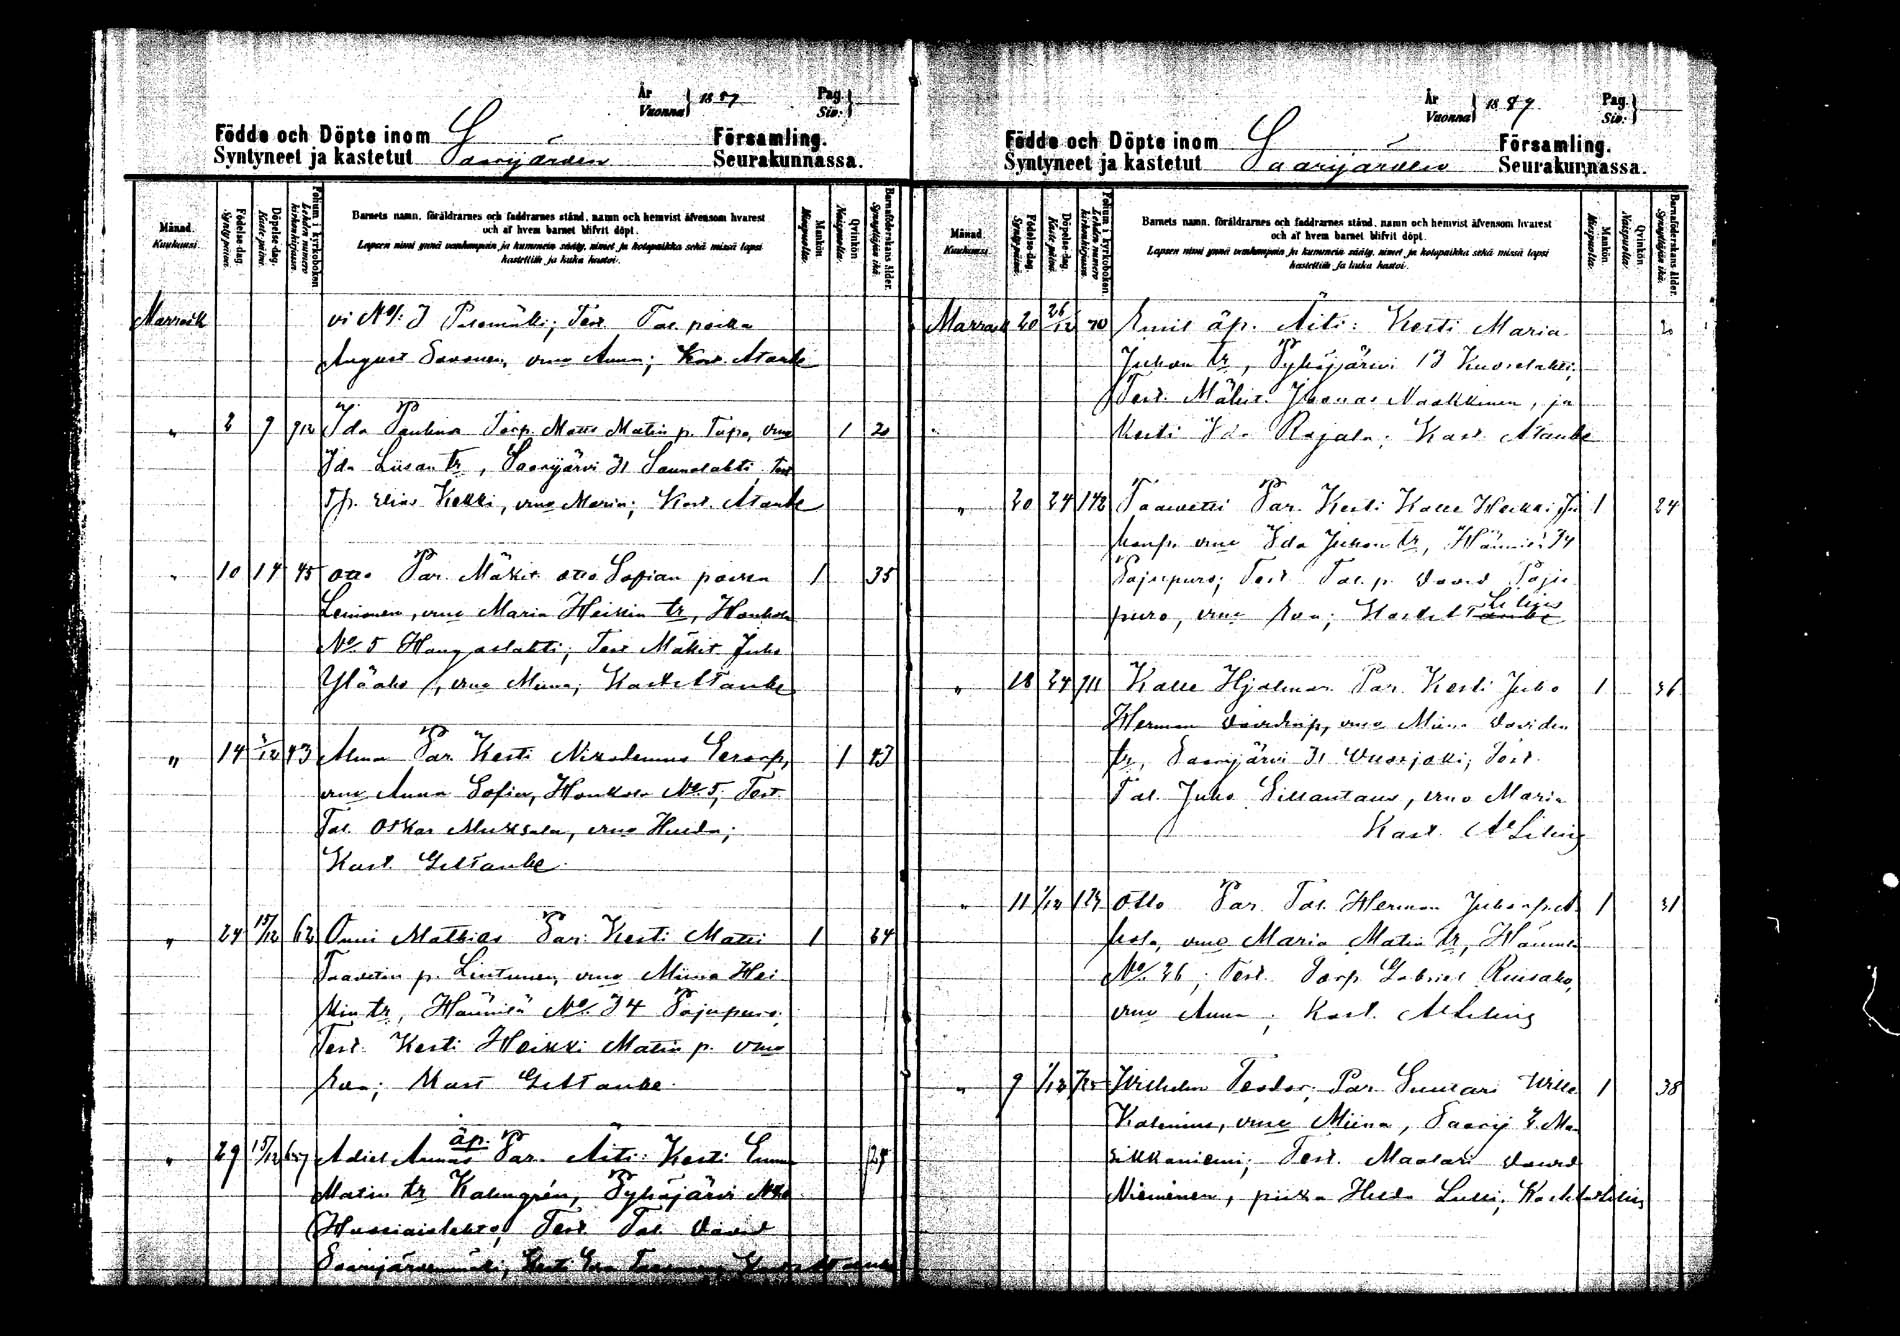 År
Vuonna } 1889 Pag.
Siv. }
Födde och Döpte inom Saarijärven Församling.
Syntyneet ja kastetut Seurakunnassa.
Månad. Kuukausi.
Födelse-dag. Syntypäivä.
Döpelse-dag. Kastepäivä.
Folium i kyrkoboken Lehden numero kirkonkirjassa.
Barnets namn, föräldrarnes och faddrarnes stånd, namn och hemvist äfvensom hvarest
och af hvem barnet blifvit döpt.
Lapsen nimi ynnä vanhempain ja kummein sääty, nimet ja kotopaikka sekä missä lapsi
kastettiin ja kuka kastoi.
Mankön. Miespuolia.
Qvinkön. Naispuolia.
Barnaföderskans ålder. Synnyttäjän ikä.
Marrask
August Savonen, vmo Anna; Kast. A Tanbe
" 2 9 912 Ida Paulina Torp. Matts Matin p. Tupa, vmo 1 20
Ida Liisan tr, Saarijärvi 31 Saunalahti, Test
Tp. Elias Kekki, vmo Maria; Kast. A Tanbe
" 10 14 45 Otto Par. Mäkit. Otto Sofian poika 1 35
Leinonen, vmo Maria Heikin tr, Honkola
No 5 Hangaslahti; Test. Mäkit. Juho
Yläaho, vmo Miina; Kast. A Tanbe
" 14 1/12 43 Alma Par. Kesti Nikodemus 1 43
vmo Anna Sofia, Honkola No 5; Test.
Tal. Oskar vmo Hulda;
Kast. G A Tanbe
" 24 15/12 62 Onni Mathias Par. Kesti Matti 1 24
Taavetin p. Lintunen, vmo Miina Hei
kin tr, Hännilä No 34 Pajupuro;
Test. Kesti Heikki Matin p. vmo
Eva; Kast G A Tanbe
" 29 15/12 Adiel Annas äp. Par. Äiti: Kesti Emma
Matin tr Kalmgrén, Pyhäjärvi
Test. Tal. David
Saarijärvenmäki, Kesti Eva
År
Vuonna } 1889 Pag.
Siv. }
Födde och Döpte inom Saarijärven Församling.
Syntyneet ja kastetut Seurakunnassa.
Månad. Kuukausi.
Födelse-dag. Syntypäivä.
Döpelse-dag. Kastepäivä.
Folium i kyrkoboken Lehden numero kirkonkirjassa.
Barnets namn, föräldrarnes och faddrarnes stånd, namn och hemvist äfvensom hvarest
och af hvem barnet blifvit döpt.
Lapsen nimi ynnä vanhempain ja kummein sääty, nimet ja kotopaikka sekä missä lapsi
kastettiin ja kuka kastoi.
Mankön. Miespuolia.
Qvinkön. Naispuolia.
Barnaföderskans ålder. Synnyttäjän ikä.
Marrask 20 26/12 70 Emil äp. Äiti: Kesti Maria
Juhon tr, Pyhäjärvi 13
Test. Mäkit. Joonas Naakkinen, ja
Kesti Ida Rajala; Kast. A Tanbe
" 20 24 142 Taavetti Par. Kesti Kalle Heikki Ju 1 24
honp. vmo Ida Juhon tr, Hännilä 34
Pajupuro; Test. Tal. p. David Paju
puro, vmo Eva; Kast. A Tanbe
" 18 24 911 Kalle Hjalmar Par. Kesti Juho 1 36
Herman Davidinp, vmo Miina Davidin
tr, Saarijärvi 31 Vuorjoki; Test.
Tal. Juho vmo Maria
Kast. A Lilius
" 11 1/12 Otto Par. Tal. Herman Juhonp. A 1 31
hola, vmo Maria Matin tr, Hännilä
No 26; Test. Torp. Gabriel Ruusaho,
vmo Anna; Kast. A Lilius
" 9 1/12 Wilhelm Teodor; Par. Suutari Wille 1 38
Kalenius, vmo Miina, Saarij.
Test. Maalari David
Nieminen, piika Hilda Kast. A Lilius